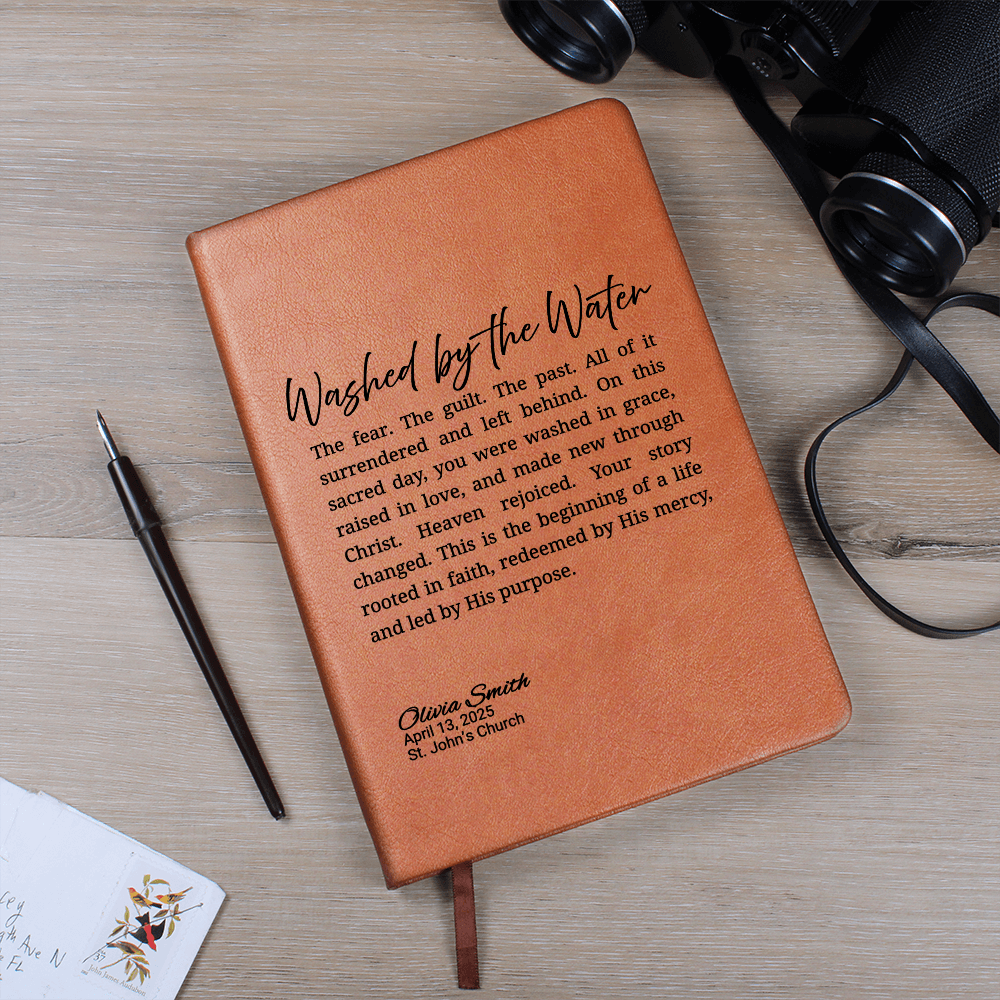 Washed by the Water
The fear. The guilt. The past. All of it
surrendered and left behind. On this
sacred day, you were washed in grace,
raised in love, and made new through
Christ. Heaven rejoiced. Your story
changed. This is the beginning of a life
rooted in faith, redeemed by His mercy,
and led by His purpose.
Olivia Smith
April 13, 2025
St. John's Church
Ave N
FL
37
John James Audubon